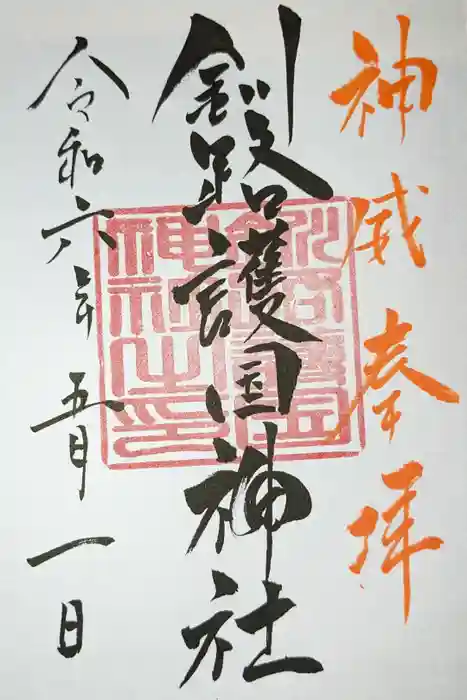 神威奉拝
釧路護国神社
令和六年五月一日
釧路護国神社之印